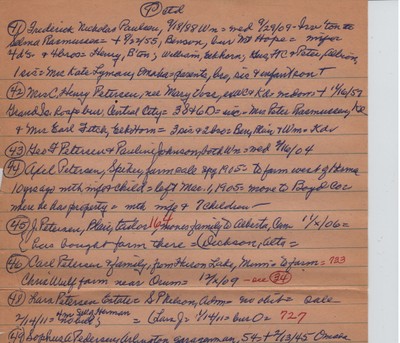 P etal
41) Frederick Nicholas Paulsen, 9/18/88 Wn = wed 9/29/09 - Irvington to
Selma Rasmussen = + 7/23/55, Benson, bur Mt Hope =
4 d's + 4 bros = Henry, B'ton, William, Elkhorn, Geo, H C & Peter,
1 sis = Mrs Kate Lyman, Omaha = parents, bro, sis & infant son +
42) Mrs C. Henry Petersen, nee Mary Cose, + 1/16/57
Grand Is. Hosp = bur Central City = 3 S & 6 D = inc. Mrs Peter Rasmussen, Ke
& Mrs Earl Fetch, Elkhorn = 3 sis & 2 bro = Ben, & Wm = Kdr
43) Geo F Petersen & Pauline Johnson, both Wn = wed 9/16/04
44) Axel Petersen, Spiker, farm sale spg 1905 = to farm west of Herma
10 yrs ago with wife & child = left Mar. 1, 1905 = move to Boyd Co
where he has property = with wife & 7 children
45) J. Petersen, Blair, tailor 164 moves family to Alberta, Can 1/ /06 =
has bought farm there = (Dickson, Alta =
46) Carl Petersen & family, from Heron Lake, Minn = to farm = 783
Chris Wulf farm near Orum = /09 - see 34
48) Lars Petersen Estate = S Nelson, Adm = no debt = sale
2/14/11 = Herman = (Lars J = 11/14 = bur O = 727
49) Sophus A Petersen, Arlington garageman, 54 + 7/13/45 Omaha